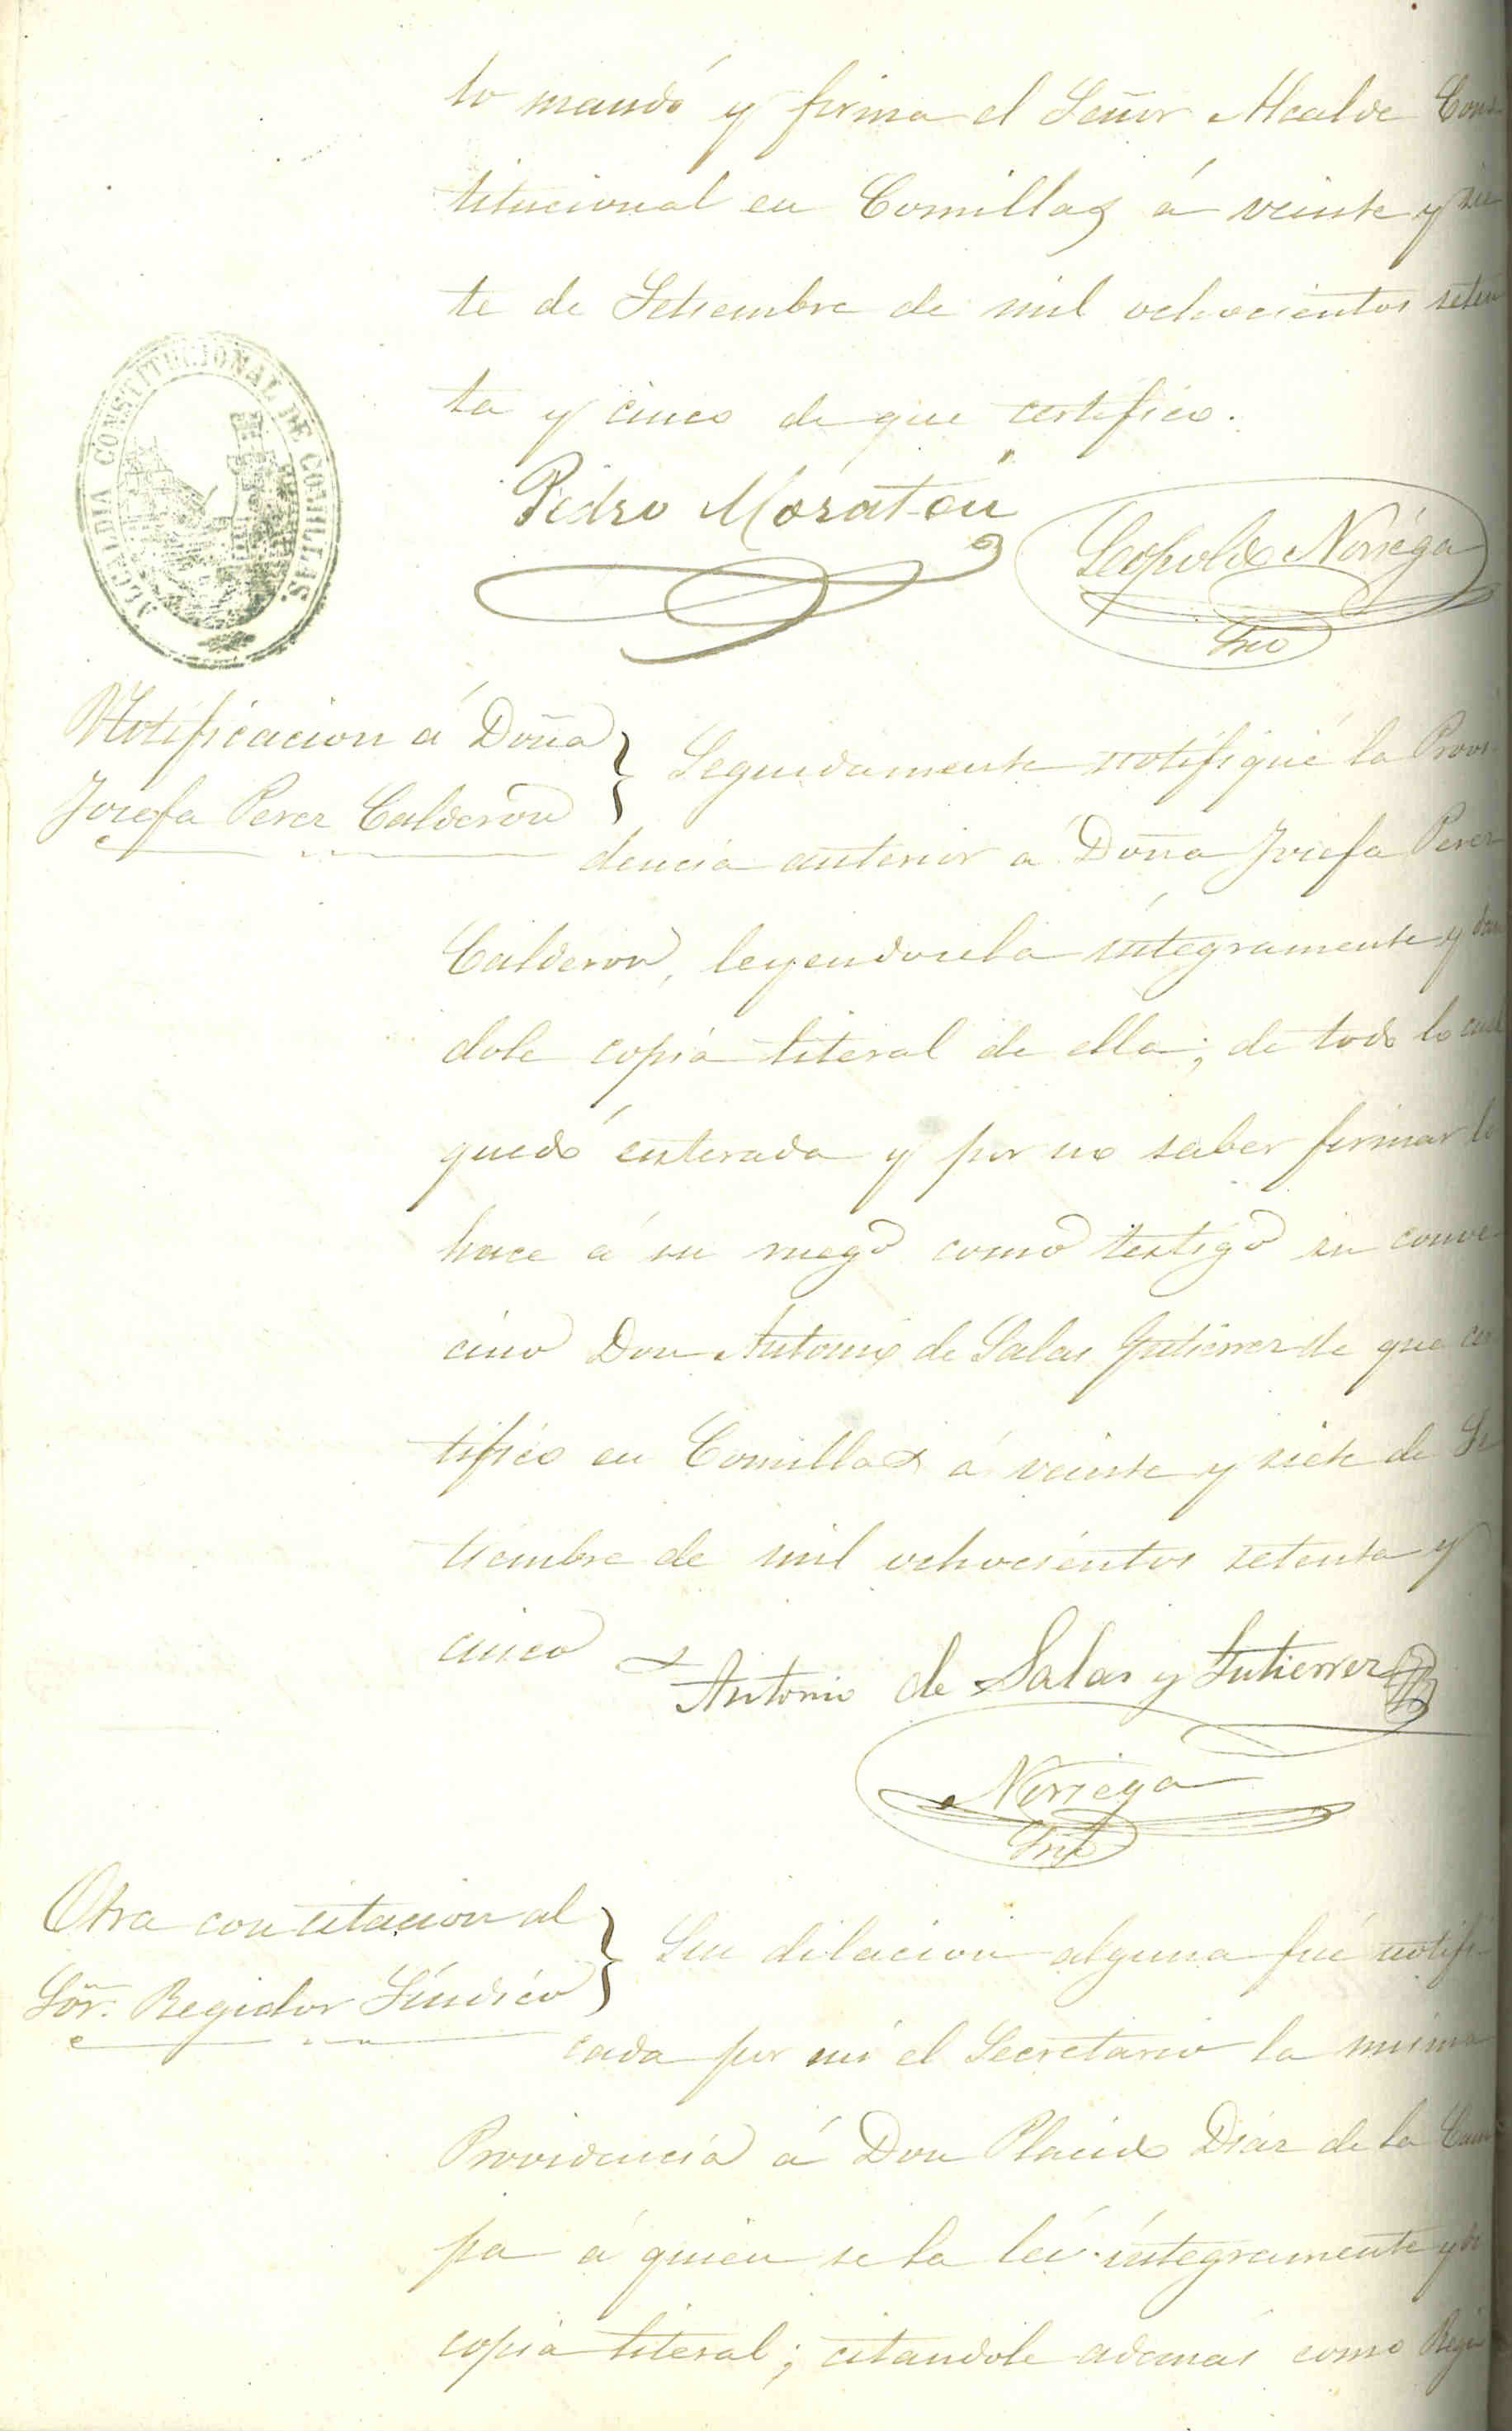 lo mandó y firma el Señor Alcalde Cons
titucional en Comillas á veinte y sie
te de Setiembre de mil ochocientos seten
ta y cinco de que certifico.
ALCALDIA CONSTITUCIONAL DE COMILLAS.
Pedro Morateu
Leopoldo Noriéga
Srio
Notificacion á Doña
Josefa Perez Calderon
Seguidamente notifiqué la Provi
dencia anterior á Doña Josefa Perez
Calderon, leyendosela íntegramente y dan
dole copia literal de ella; de todo lo cual
quedó enterada y por no saber firmar lo
hace á su ruego como testigo su conve
cino Don Antonio de Salas Gutierrez de que cer
tifico en Comillas á veinte y siete de Se
tiembre de mil ochocientos setenta y
cinco
Antonio de Salas y Gutierrez
Noriega
Srio
Otra con citacion al
Sor. Regidor Síndico
Sin dilacion alguna fué notifi
cada por mi el Secretario la misma
Providencia á Don Placido Diaz de la Cam
pa á quien se la leí íntegramente y dí
copia literal; citandole ademas como Regi